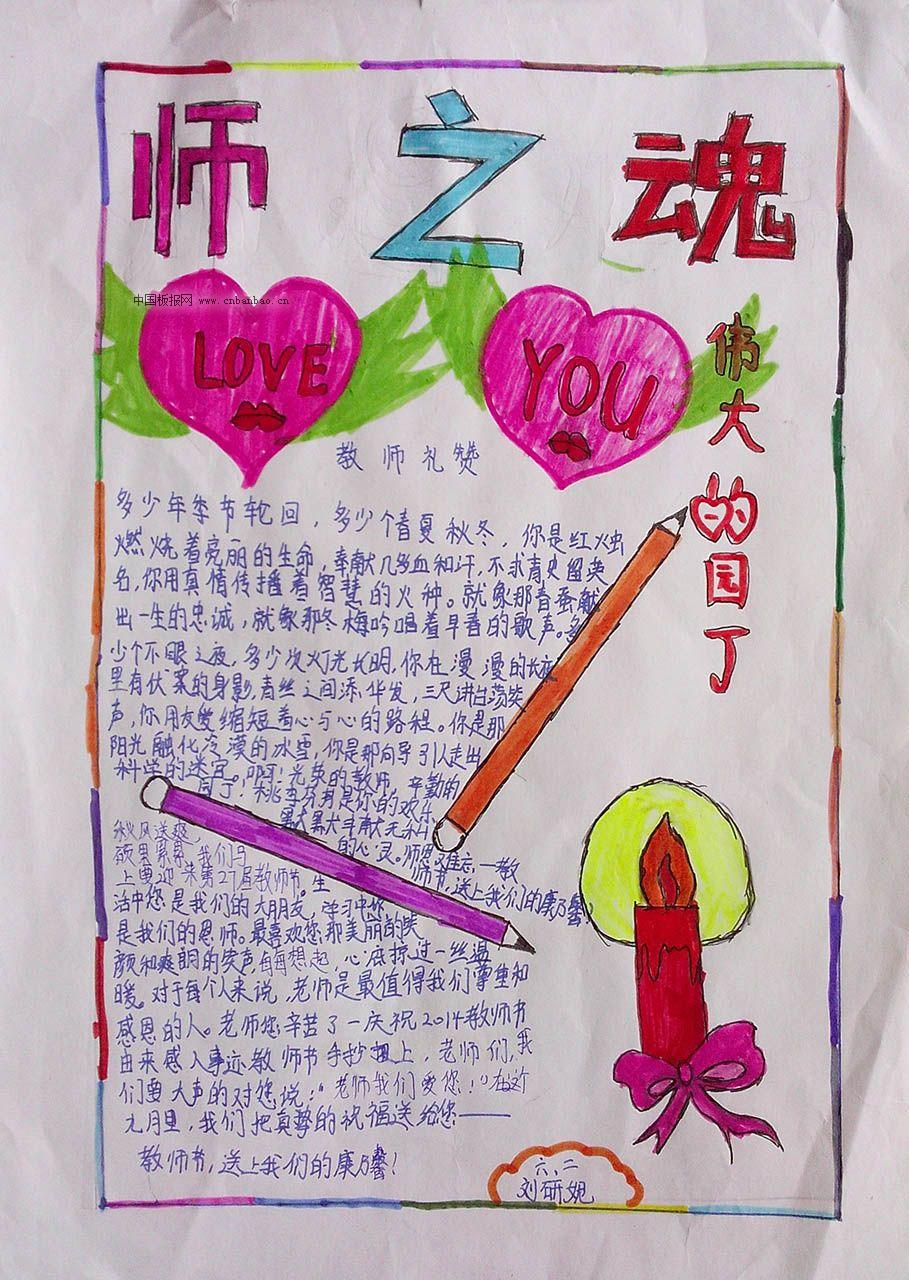 师之魂
中国板报网 www.cnbanbao.cn
LOVE
YOU
伟大的园丁
教师礼赞
多少年季节轮回，多少个春夏秋冬，你是红烛
燃烧着亮丽的生命，奉献几多血和汗，不求青史留英
名，你用真情传播着智慧的火种。就象那春蚕献
出一生的忠诚，就象那冬梅吟唱着早春的歌声。多
少个不眠之夜，多少次灯光长明，你在漫漫的长夜
里有伏案的身影，青丝之间添华发，三尺讲台荡笑
声，你用友爱缩短着心与心的路程。你是那
阳光融化冷漠的冰雪，你是那向导引人走出
科学的迷宫。啊！光荣的教师 辛勤的
园丁！桃李芬芳是你的欢乐
默默奉献无私
的心灵。师恩难忘，一教
秋风送爽，
硕果累累，我们与
上电迎来第27届教师节。生 师节，送上我们的康乃馨
活中您是我们的大朋友，学习中您
是我们的恩师。最喜欢您那美丽的笑
颜和爽朗的笑声，每每想起，心底掠过一丝温
暖。对于每个人来说，老师是最值得我们尊重和
感恩的人。老师您辛苦了—庆祝2014教师节
由来感人事迹教师节手抄报上，老师们，我
们要大声的对您说："老师我们爱您！"在这个
九月里，我们把真挚的祝福送给您——
教师节，送上我们的康乃馨！
六、二
刘研婉